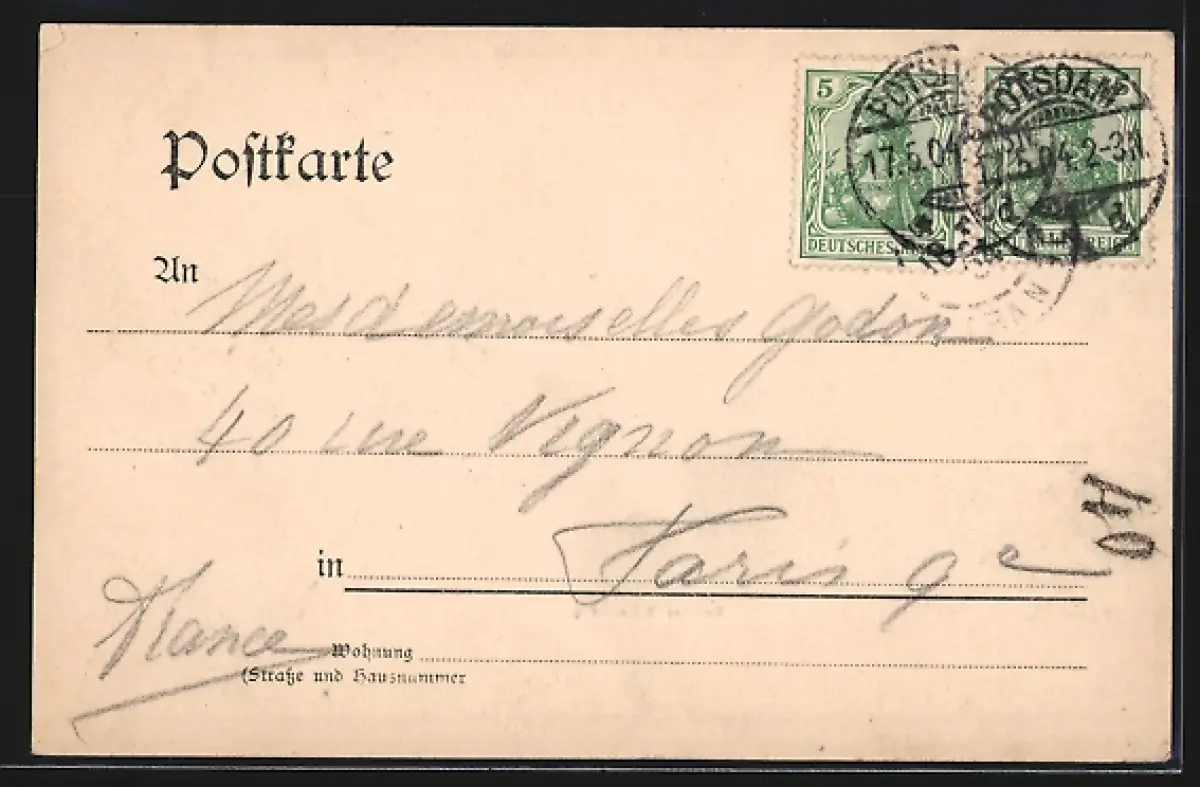 5
DEUTSCHES
REICH
POTSDAM
17.5.04.2-3N.
Postkarte
An
Mesdemoiselles Godon
40 rue Vignon
in Paris 9e
France
Wohnung
(Straße und Hausnummer